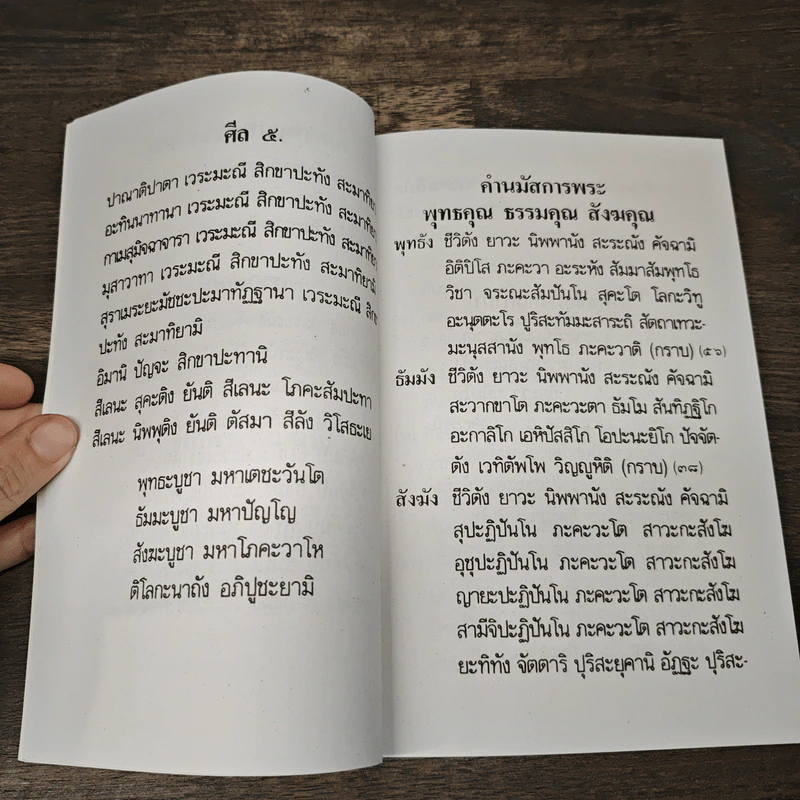 ศีล ๕.
ปาณาติปาตา เวระมะณี สิกขาปะทัง สะมาทิยา
อะทินนาทานา เวระมะณี สิกขาปะทัง สะมาทิยา
กาเมสุมิจฉาจารา เวระมะณี สิกขาปะทัง สะมาทิยา
มุสาวาทา เวระมะณี สิกขาปะทัง สะมาทิยามิ
สุราเมระยะมัชชะปะมาทัฏฐานา เวระมะณี สิกขา
ปะทัง สะมาทิยามิ
อิมานิ ปัญจะ สิกขาปะทานิ
สีเลนะ สุคะติง ยันติ สีเลนะ โภคะสัมปะทา
สีเลนะ นิพพุติง ยันติ ตัสมา สีลัง วิโสธะเย
พุทธะบูชา มหาเตชะวันโต
ธัมมะบูชา มหาปัญโญ
สังฆะบูชา มหาโภคะวาโห
ติโลกะนาถัง อภิปูชะยามิ
คำนมัสการพระ
พุทธคุณ ธรรมคุณ สังฆคุณ
พุทธัง ชีวิตัง ยาวะ นิพพานัง สะระณัง คัจฉามิ
อิติปิโส ภะคะวา อะระหัง สัมมาสัมพุทโธ
วิชา จระณะสัมปันโน สุคะโต โลกะวิทู
อะนุตตะโร ปุริสะทัมมะสาระถิ สัตถาเทวะ-
มะนุสสานัง พุทโธ ภะคะวาติ (กราบ) (๕๖)
ธัมมัง ชีวิตัง ยาวะ นิพพานัง สะระณัง คัจฉามิ
สะวากขาโต ภะคะวะตา ธัมโม สันทิฏฐิโก
อะกาลิโก เอหิปัสสิโก โอปะนะยิโก ปัจจัต-
ตัง เวทิตัพโพ วิญญูหิติ (กราบ) (๓๘)
สังฆัง ชีวิตัง ยาวะ นิพพานัง สะระณัง คัจฉามิ
สุปะฏิปันโน ภะคะวะโต สาวะกะสังโฆ
อุชุปะฏิปันโน ภะคะวะโต สาวะกะสังโฆ
ญายะปะฏิปันโน ภะคะวะโต สาวะกะสังโฆ
สามีจิปะฏิปันโน ภะคะวะโต สาวะกะสังโฆ
ยะทิทัง จัตตาริ ปุริสะยุคานิ อัฏฐะ ปุริสะ-